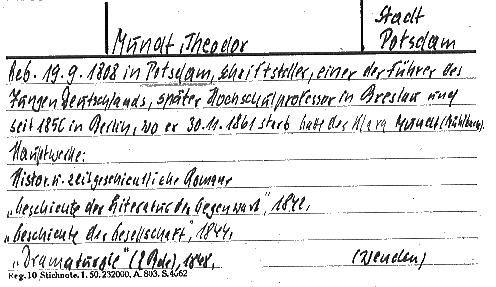 Stadt
Mundt, Theodor Potsdam
Geb. 19.9.1808 in Potsdam, Schriftsteller, einer der Führer des
Jungen Deutschlands, später Hochschulprofessor in Breslau und
seit 1850 in Berlin, wo er 30.11.1861 starb Gatte der Klara Mundt (Mühlbach).
Hauptwerke:
Histor. u. zeitgeschichtliche Romane
„Geschichte der Literatur der Gegenwart", 1842,
„Geschichte der Gesellschaft", 1844,
„Dramaturgie" (2 Bde), 1848, (Wenden)
Reg. 10 Stichnote. I. 50. 232000. A. 803. S. 4662